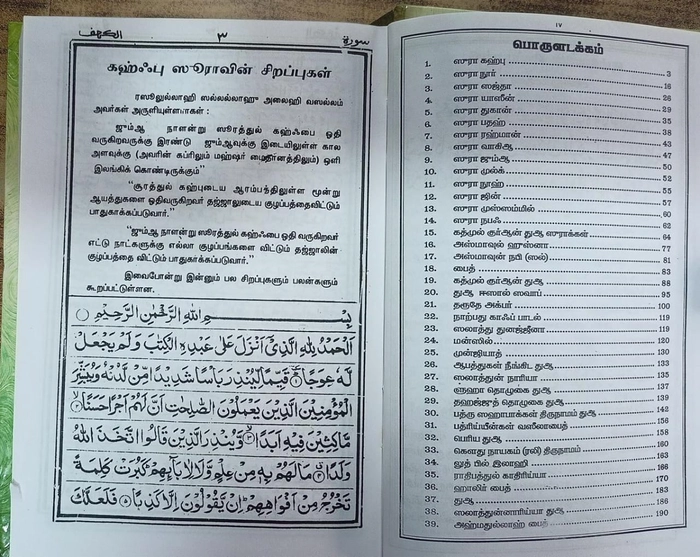 الكهف ٣ سورة
கஹ்ஃபு ஸூராவின் சிறப்புகள்
ரஸூலுல்லாஹி ஸல்லல்லாஹு அலைஹி வஸல்லம்
அவர்கள் அருளியுள்ளாகள் :
ஜும்ஆ நாளன்று ஸூரத்துல் கஹ்ஃபை ஓதி
வருகிறவருக்கு இரண்டு ஜும்ஆவுக்கு இடையிலுள்ள கால
அளவுக்கு (அவரின் கப்ரிலும் மஹ்ஷர் மைதானத்திலும்) ஒளி
இலங்கிக் கொண்டிருக்கும்"
"சூரத்துல் கஹ்புடைய ஆரம்பத்திலுள்ள மூன்று
ஆயத்துகளை ஓதிவருகிறவர் தஜ்ஜாலுடைய குழப்பத்தைவிட்டும்
பாதுகாக்கப்படுவார்."
"ஜும்ஆ நாளன்று ஸூரத்துல் கஹ்ஃபை ஓதி வருகிறவர்
எட்டு நாட்களுக்கு எல்லா குழப்பங்களை விட்டும் தஜ்ஜாலின்
குழப்பத்தை விட்டும் பாதுகாக்கப்படுவார்."
இவைபோன்று இன்னும் பல சிறப்புகளும் பலன்களும்
கூறப்பட்டுள்ளன.
بِسْمِ اللهِ الرَّحْمٰنِ الرَّحِيْمِ
اَلْحَمْدُ لِلّٰهِ الَّذِيْٓ اَنْزَلَ عَلٰى عَبْدِهِ الْكِتٰبَ وَلَمْ يَجْعَلْ
لَّهٗ عِوَجًا ۝١ قَيِّمًا لِّيُنْذِرَ بَاْسًا شَدِيْدًا مِّنْ لَّدُنْهُ وَيُبَشِّرَ
الْمُؤْمِنِيْنَ الَّذِيْنَ يَعْمَلُوْنَ الصّٰلِحٰتِ اَنَّ لَهُمْ اَجْرًا حَسَنًا ۝٢
مَّاكِثِيْنَ فِيْهِ اَبَدًا ۝٣ وَّيُنْذِرَ الَّذِيْنَ قَالُوا اتَّخَذَ اللهُ
وَلَدًا ۝٤ مَا لَهُمْ بِهٖ مِنْ عِلْمٍ وَّلَا لِاٰبَآئِهِمْ كَبُرَتْ كَلِمَةً
تَخْرُجُ مِنْ اَفْوَاهِهِمْ اِنْ يَّقُوْلُوْنَ اِلَّا كَذِبًا ۝٥ فَلَعَلَّكَ
١٧
பொருளடக்கம்
1. ஸுரா கஹ்பு
2. ஸுரா நூர் 3
3. ஸுரா ஸஜ்தா 16
4. ஸுரா யாஸீன் 26
5. ஸுரா துகான் 29
6. ஸுரா பதஹ் 35
7. ஸுரா ரஹ்மான் 38
8. ஸுரா வாகிஆ 43
9. ஸுரா ஜும்ஆ 47
10. ஸுரா முல்க் 52
11. ஸுரா நூஹ் 55
12. ஸுரா ஜின் 57
13. ஸுரா முஸ்ஸம்மில் 60
14. ஸுரா நபஃ 62
15. கத்முல் குர்ஆன் துஆ ஸுராக்கள் 64
16. அஸ்மாவுல் ஹுஸ்னா 77
17. அஸ்மாவுன் நபி (ஸல்) 81
18. பைத் 83
19. கத்முல் குர்ஆன் துஆ 88
20. துஆ ஈஸால் ஸவாப் 95
21. தரூதே அக்பர் 100
22. நாற்பது காஃப் பாடல் 119
23. ஸலாத்து துனஜ்ஜீனா 119
24. மன்ஸில் 120
25. முன்ஜியாத் 130
26. ஆபத்துகள் நீங்கிட துஆ 133
27. ஸலாத்துன் நாரியா 135
28. ளுஹா தொழுகை துஆ 137
29. தஹஜ்ஜுத் தொழுகை துஆ 139
30. பத்ரு ஸஹாபாக்கள் திருநாமம் துஆ 142
31. பத்ரிய்யீன்கள் வஸீலாபைத் 156
32. பெரிய துஆ 158
33. கௌது நாயகம் (ரலி) திருநாமம் 160
34. லுத் பில் இலாஹி 163
35. ராதிபத்துல் காதிரிய்யா 166
36. ஹாலிர் பைத் 170
37. துஆ 183
38. ஸலாத்துன்னாரிய்யா துஆ 186
39. அஹ்மதுல்லாஹ் பைத் 190